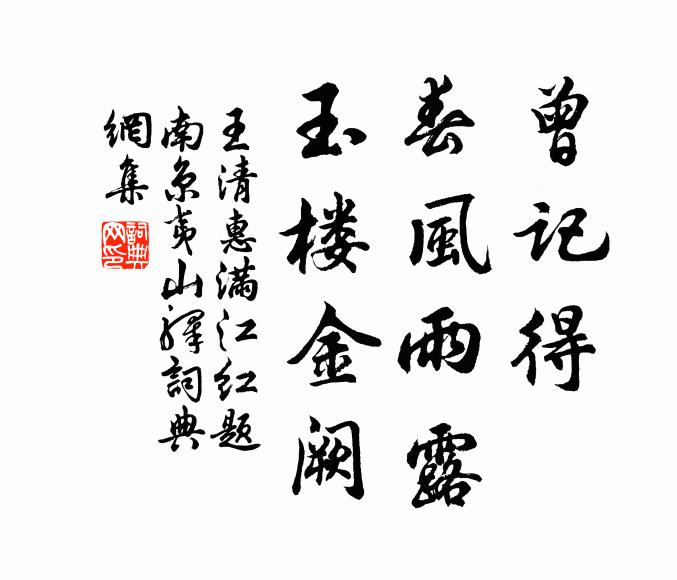 曾记得
春風雨露
玉楼金阙
王清惠满江红题
南京夷山驿詞典
網集
詞典
网印